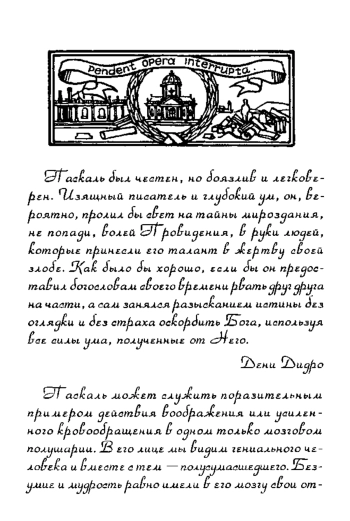 Pendent opera interrupta.
Паскаль был честен, но боязлив и легкове-
рен. Изящный писатель и глубокий ум, он, ве-
роятно, пролил бы свет на тайны мироздания,
не попади, волей Провидения, в руки людей,
которые принесли его талант в жертву своей
злобе. Как было бы хорошо, если бы он предос-
тавил богословам своего времени рвать друг друга
на части, а сам занялся разысканием истины без
оглядки и без страха оскорбить Бога, используя
все силы ума, полученные от Него.
Дени Дидро
Паскаль может служить поразительным
примером действия воображения или усилен-
ного кровообращения в одном только мозговом
полушарии. В его лице мы видим гениального че-
ловека и вместе с тем — полусумасшедшего. Без-
умие и мудрость равно имели в его мозгу свои от-